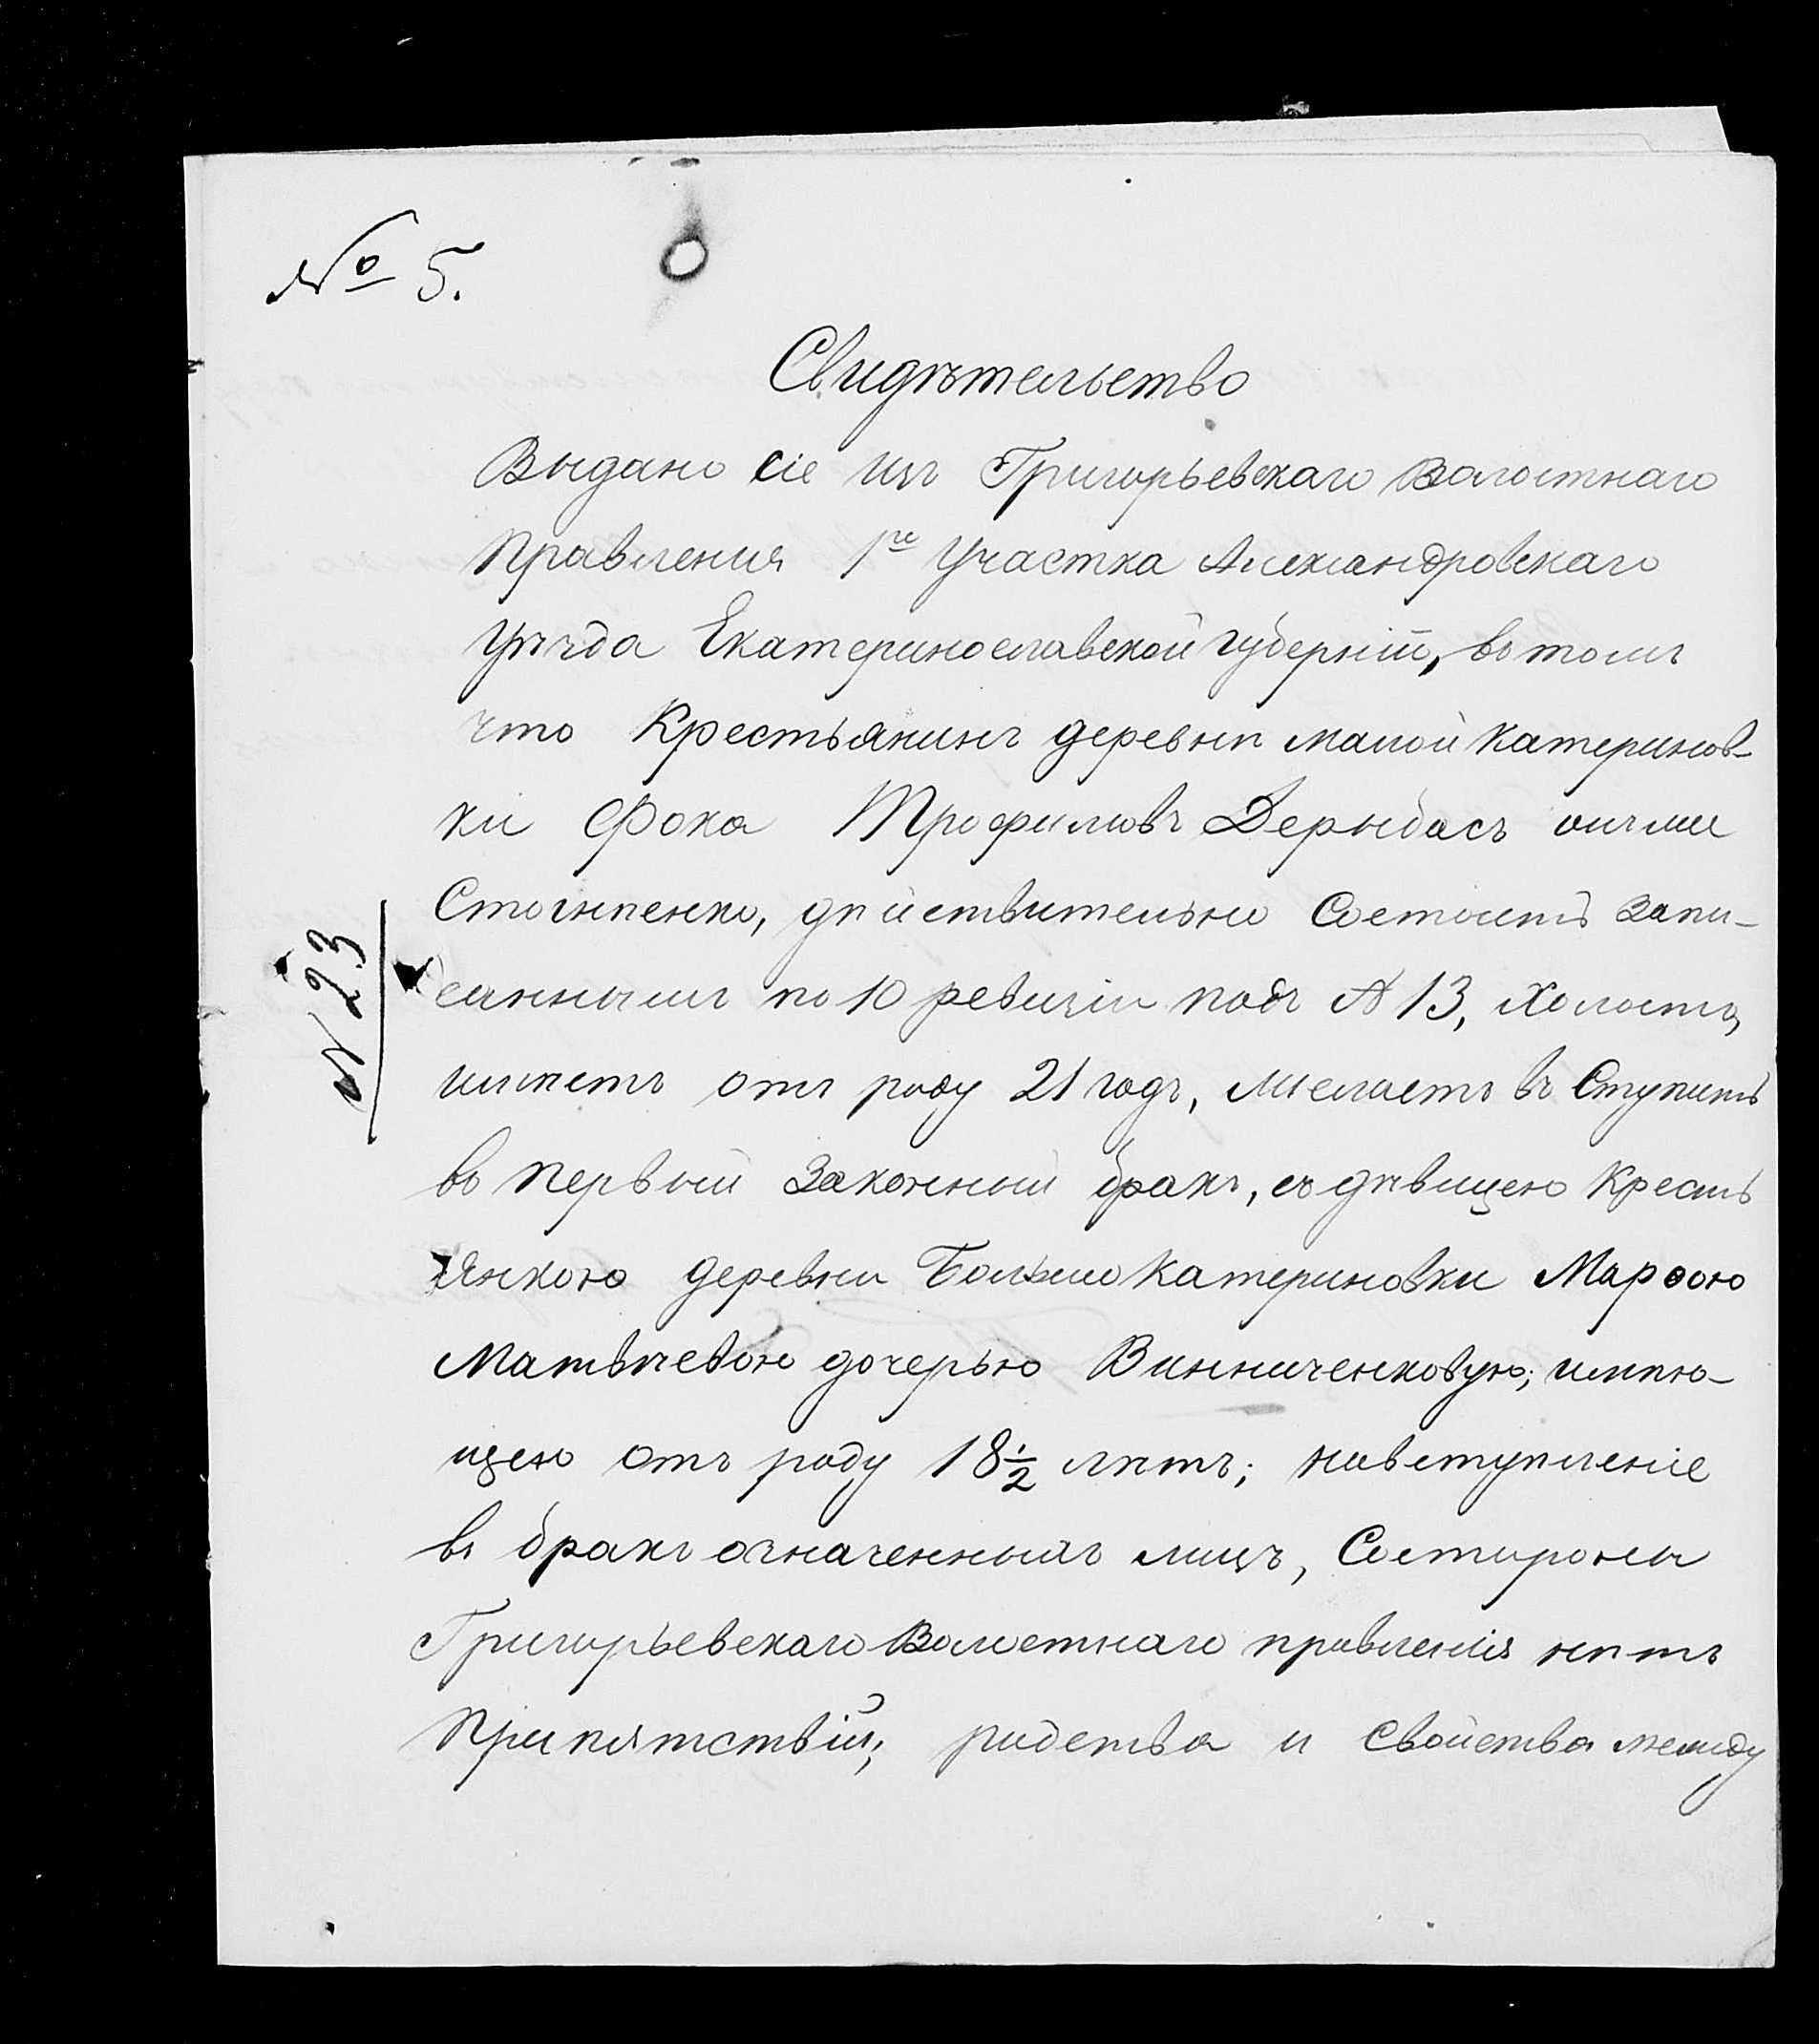 № 5.
Свидѣтельство
Выдано сіе изъ Григорьевскаго Волостнаго
Правления 1го Участка Александровскаго
Уѣзда Екатеринославской губерніи, въ томъ
что Крестьянинъ деревни малой катеринов-
ки Фока Трофимовъ Дерыбасъ онъ же
Стогнѣенко, дѣйствительно Состоитъ Запи-
саннымъ по 10 ревизіи подъ № 13, Холостъ,
имѣетъ отъ роду 21 годъ, Желаетъ въ Ступить
въ первый Законный бракъ, съ дѣвицею Кресть
янкою деревни Большо Катериновки Марѳою
Матвѣевою дочерью Винниченковую; имѣю-
щею отъ роду 18½ лѣтъ; навступленіе
въ бракъ означенныхъ лицъ, Состороны
Григорьевскаго Волостнаго правленія нѣтъ
Припятствій; родства и Свойства между
№ 23